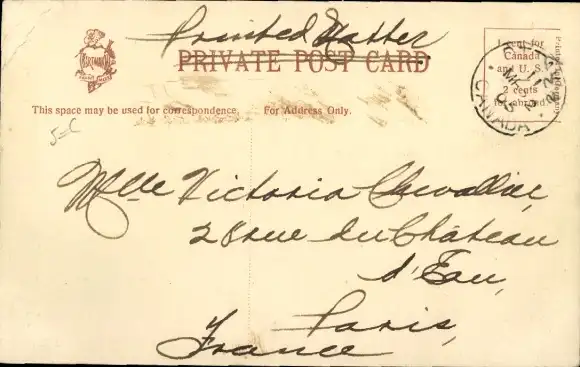 Printed Matter
PRIVATE POST CARD
1 cent for
Canada
and U. S.
2 cents
for abroad
Printed in Germany
CANADA
This space may be used for correspondence.
For Address Only.
Mlle Victoria Chevallier,
28 rue du Château
d'Eau,
Paris,
France